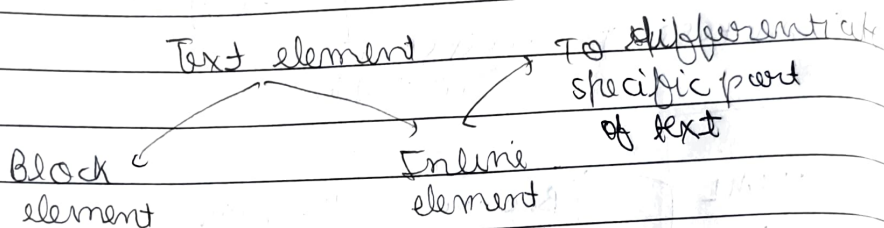 Text element
To differentiate
specific part
of text
Block
element
Inline
element